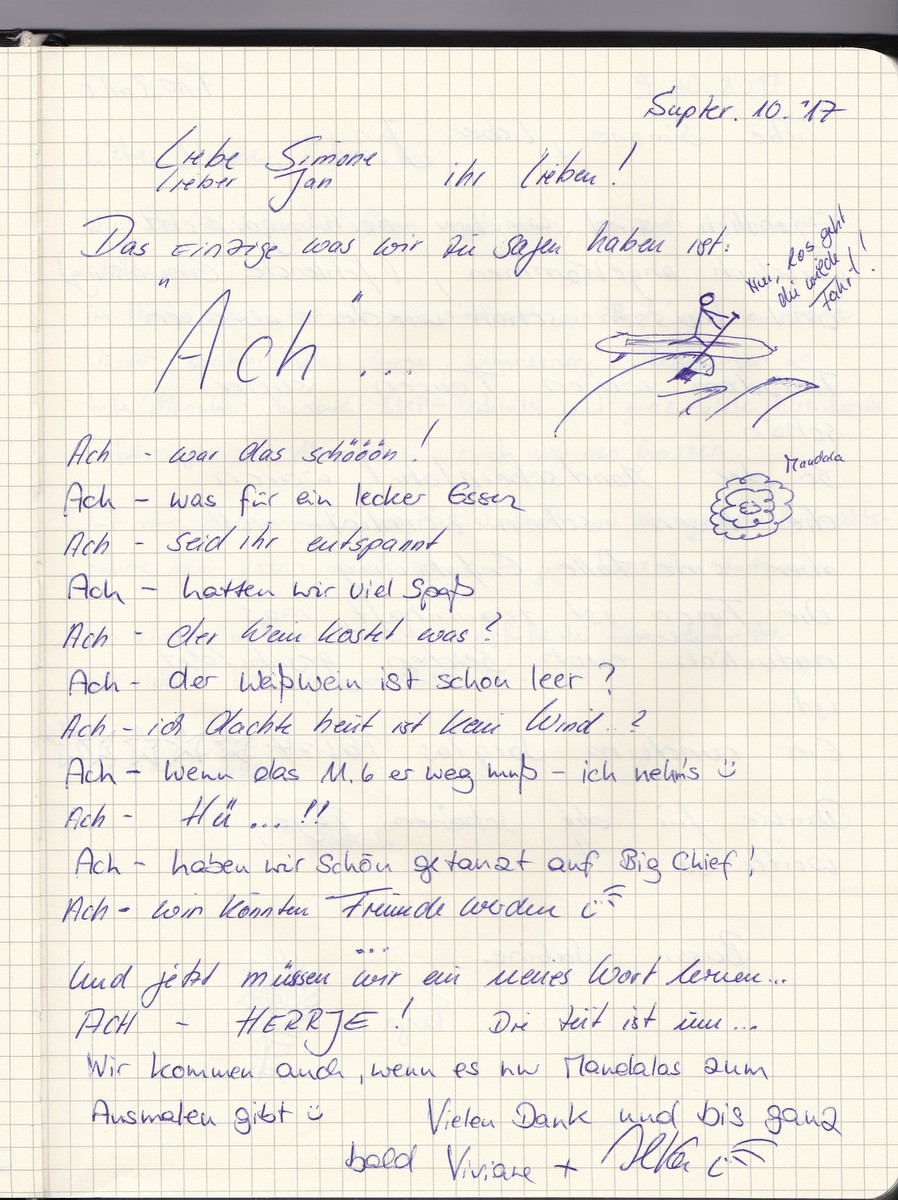 Supter. 10. '17
Liebe Simone
lieber Jan ihr lieben!
Das Einzige was wir zu sagen haben ist:
Hui, los geht
die wilde
Fahrt!!
"Ach" ...
Ach - war das schööön!
Mandala
Ach - was für ein lecker Essen
Ach - seid ihr entspannt
Ach - hatten wir viel Spaß
Ach - der Wein kostet was?
Ach - der Weißwein ist schon leer?
Ach - ich dachte heut ist kein Wind..?
Ach - wenn das M.6 er weg muß - ich nehm's ü
Ach - Hü...!!
Ach - haben wir schön getanzt auf Big Chief!
Ach - wir könnten Freunde werden
...
Und jetzt müssen wir ein neues Wort lernen...
ACH - HERRJE! Die Zeit ist um...
Wir kommen auch, wenn es nur Mandalas zum
Ausmalen gibt ü Vielen Dank und bis ganz
bald Viviane +